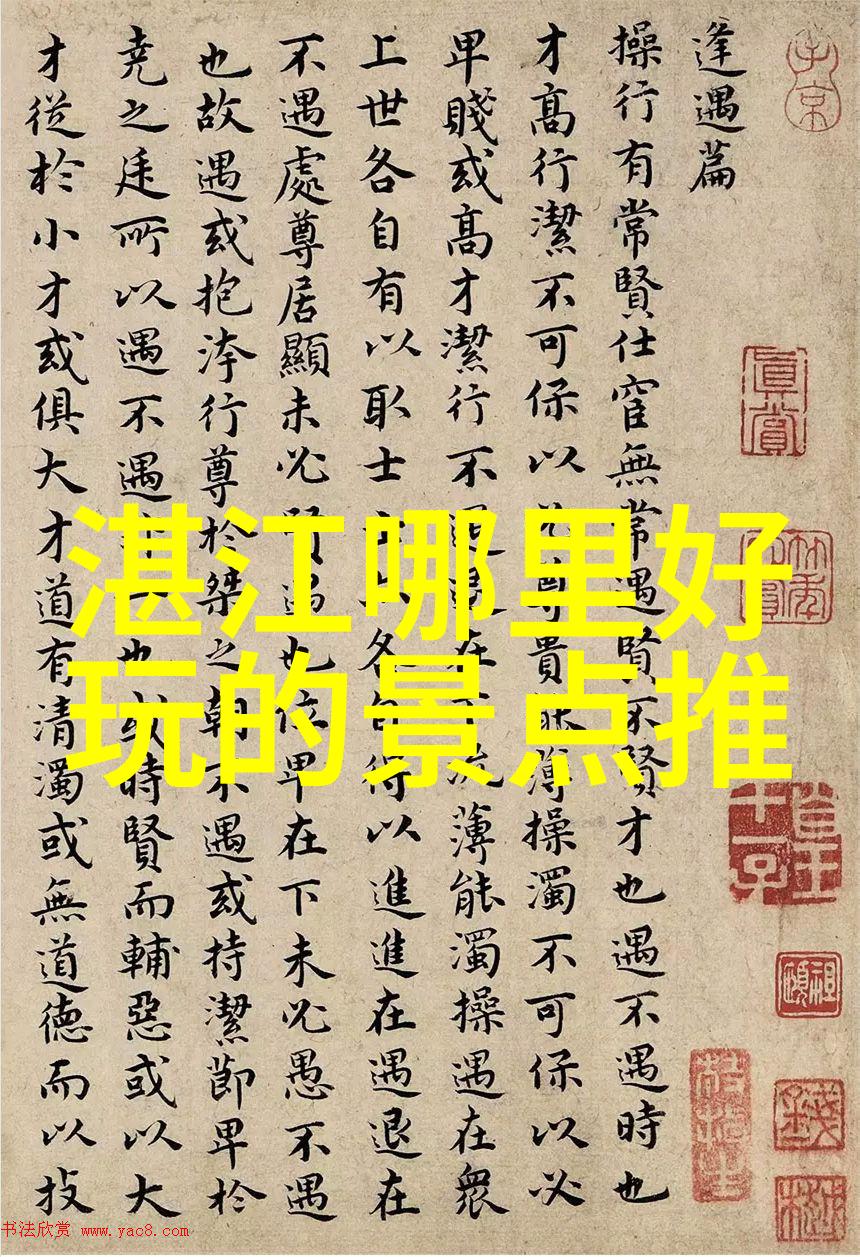 逢遇篇
操行有常賢仕宦無常遇賢不賢才也遇不遇時也
才高行潔不可保以尊貴能薄操濁不可保以必
卑賤或高才潔行不遇在流薄能濁操遇在衆
上世各自有以取士各得以進進在遇退在
不遇處尊居顯未必賢遇也位卑在下未必愚不遇
也故遇或抱洿行尊於桀之朝不遇或持潔節卑於
堯之廷所以遇不遇也或時賢而輔惡或以大
才從於小才或俱大才道有清濁或無道德而以技
湛江哪里好
玩的景点推
真賞
书法欣赏 www.yac8.com